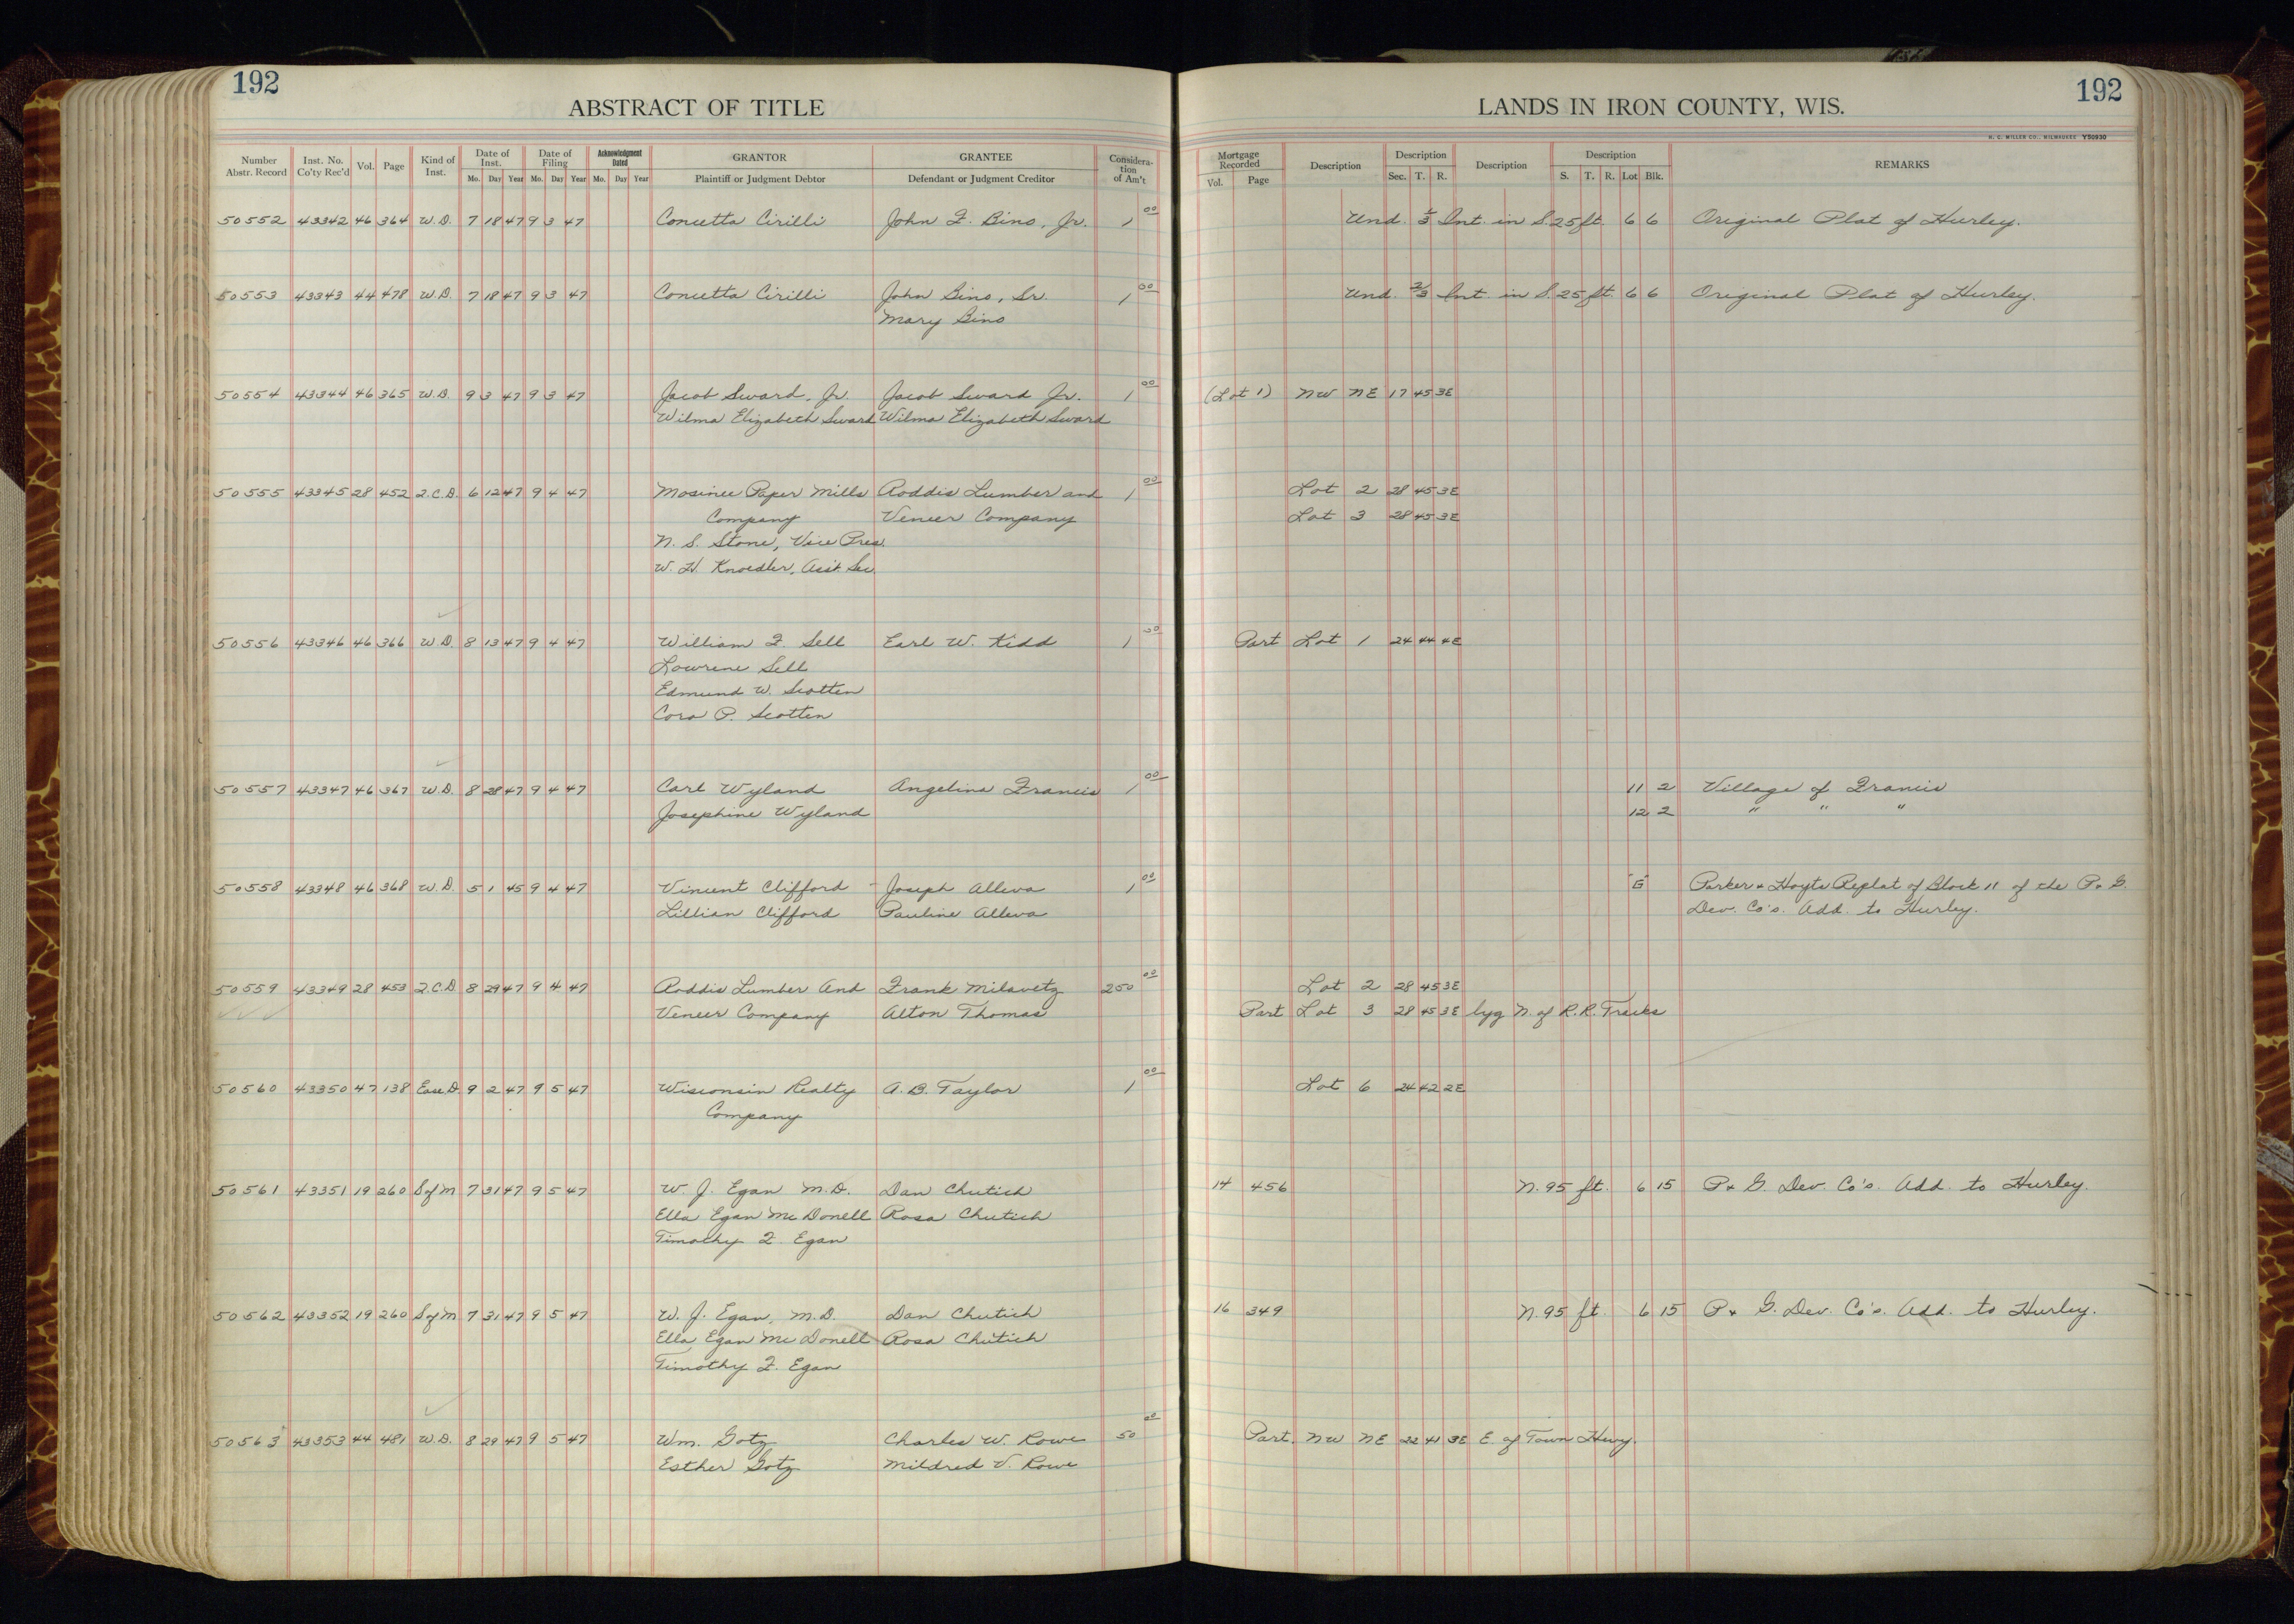 192
ABSTRACT OF TITLE
Number Abstr. Record | Inst. No. Co'ty Rec'd | Vol. | Page | Kind of Inst. | Date of Inst. Mo. Day Year | Date of Filing Mo. Day Year | Acknowledgment Dated Mo. Day Year | GRANTOR Plaintiff or Judgment Debtor | GRANTEE Defendant or Judgment Creditor | Consideration of Am't
192
LANDS IN IRON COUNTY, WIS.
H. C. MILLER CO., MILWAUKEE Y50930
Mortgage Recorded Vol. Page | Description | Description Sec. T. R. | Description | Description S. T. R. Lot Blk. | REMARKS
50552 43342 46 364 W.D. 7 18 47 9 3 47 Concetta Cirilli John F. Bino, Jr. 1 00 Und. 1/3 Int. in S. 25 ft. 6 6 Original Plat of Hurley.
50553 43343 44 478 W.D. 7 18 47 9 3 47 Concetta Cirilli John Bino, Sr. 1 00 Und. 2/3 Int. in S. 25 ft. 6 6 Original Plat of Hurley.
Mary Bino
50554 43344 46 365 W.D. 9 3 47 9 3 47 Jacob Sward, Jr. Jacob Sward Jr. 1 00 (Lot 1) NW NE 17 45 3E
Wilma Elizabeth Sward Wilma Elizabeth Sward
50555 43345 28 452 Q.C.D. 6 12 47 9 4 47 Mosinee Paper Mills Roddis Lumber and 1 00 Lot 2 28 45 3E
Company Veneer Company Lot 3 28 45 3E
N. S. Stone, Vice Pres.
W. H. Knoedler, Ass't. Sec.
50556 43346 46 366 W.D. 8 13 47 9 4 47 William F. Sell Earl W. Kidd 1 00 Part Lot 1 24 44 4E
Lowrene Sell
Edmund W. Scotten
Cora P. Scotten
50557 43347 46 367 W.D. 8 28 47 9 4 47 Carl Wyland Angelina Francis 1 00 11 2 Village of Francis
Josephine Wyland 12 2 " " "
50558 43348 46 368 W.D. 5 1 45 9 4 47 Vincent Clifford Joseph Alleva 1 00 "G" Parker & Hoyts Replat of Block 11 of the P. & G.
Lillian Clifford Pauline Alleva Dev. Co's. Add. to Hurley.
50559 43349 28 453 Q.C.D 8 29 47 9 4 47 Roddis Lumber And Frank Milavetz 250 00 Lot 2 28 45 3E
Veneer Company Alton Thomas Part Lot 3 28 45 3E lyg N. of R.R. Tracks
50560 43350 47 138 Ease D. 9 2 47 9 5 47 Wisconsin Realty A. B. Taylor 1 00 Lot 6 24 42 2E
Company
50561 43351 19 260 S of M 7 31 47 9 5 47 W. J. Egan M.D. Dan Chutich 14 456 N. 95 ft. 6 15 P. & G. Dev. Co's. Add. to Hurley.
Ella Egan Mc Donell Rosa Chutich
Timothy F. Egan
50562 43352 19 260 S of M 7 31 47 9 5 47 W. J. Egan, M.D. Dan Chutich 16 349 N. 95 ft. 6 15 P. & G. Dev. Co's. Add. to Hurley.
Ella Egan Mc Donell Rosa Chutich
Timothy F. Egan
50563 43353 44 481 W.D. 8 29 47 9 5 47 Wm. Gotz Charles W. Rowe 50 00 Part NW NE 22 41 3E E. of Town Hwy.
Esther Gotz Mildred V. Rowe